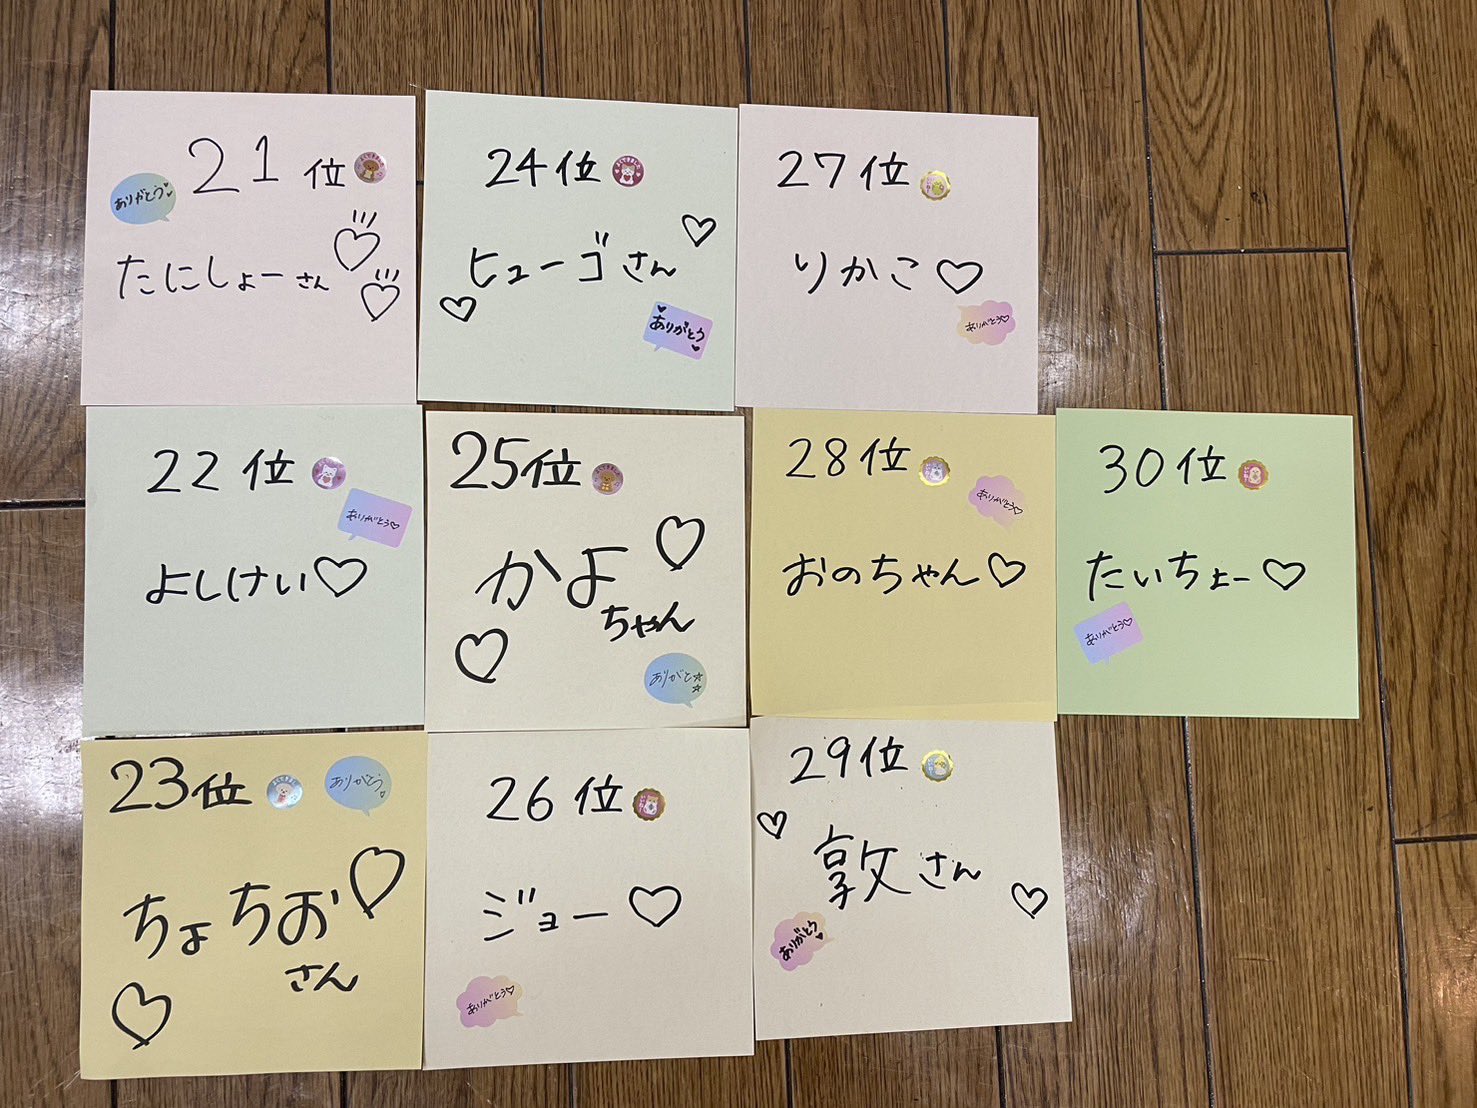 21位
ありがとう
たにしょーさん
22位
ありがとう
よしけい
23位
ありがとう
ちょちお
さん
24位
ヒューゴさん
ありがとう
25位
かよ
ちゃん
ありがと
26位
ジョー
ありがとう
27位
りかこ
ありがとう
28位
ありがとう
おのちゃん
29位
敦さん
ありがとう
30位
たいちょー
ありがとう